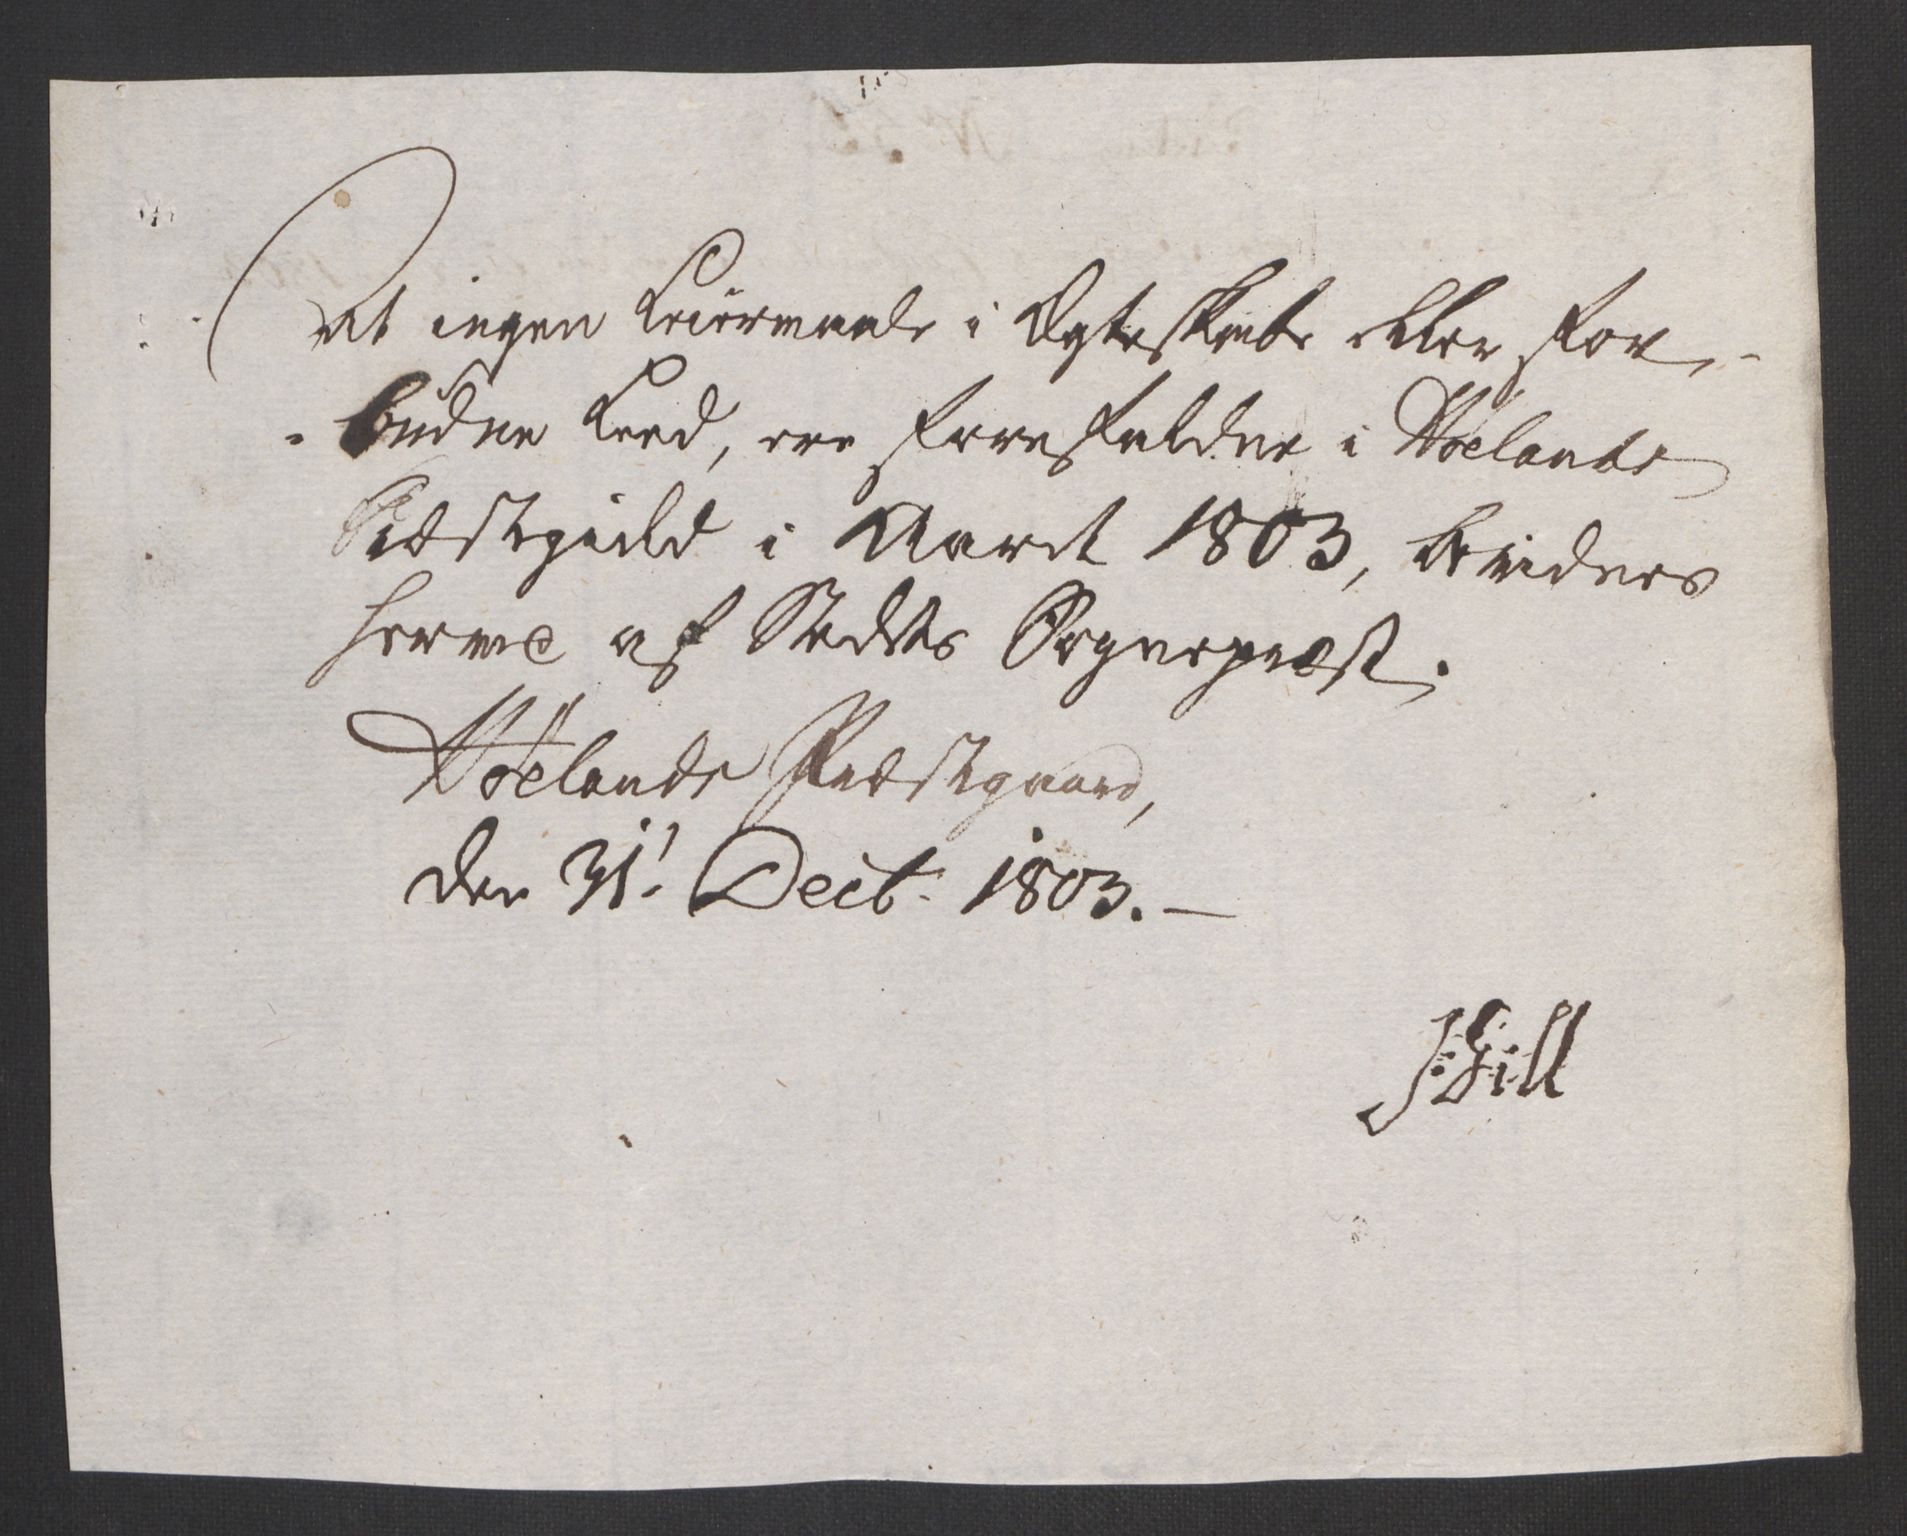 At ingen Leiermaale i Egteskabe eller For-
-budne Leed, ere forefaldne i Moelands
Præstegield i Aaret 1803, bevidnes
herved af Stedets Sognepræst.
Moelands Præstegaard,
den 31. Decb. 1803.—
J. Gill